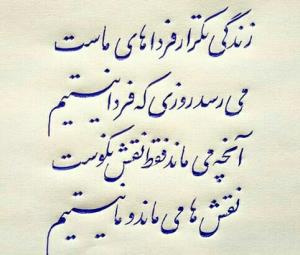 زندگی تکرار فردا های ماست
می رسد روزی که فردا نیستیم
آنچه می ماند فقط نقش نکوست
نقش ها می ماند و ما نیستیم